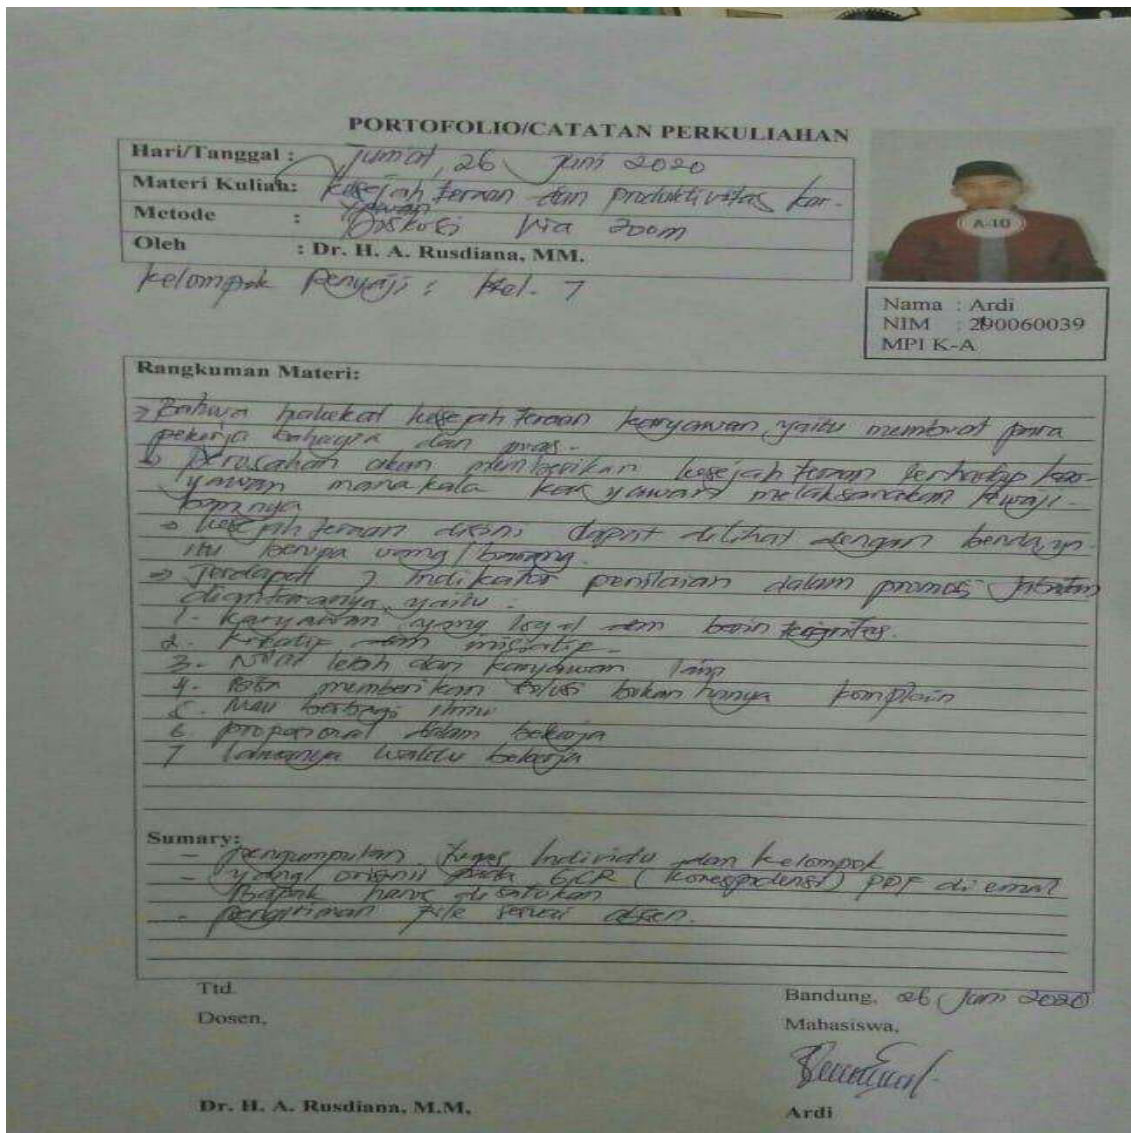 PORTOFOLIO/CATATAN PERKULIAHAN
Hari/Tanggal : Jum'at, 26 Juni 2020
Materi Kuliah: Kesejahteraan dan produktivitas kar-
yawan
Metode : Diskusi Via Zoom
Oleh : Dr. H. A. Rusdiana, MM.
Kelompok Penyaji : Kel. 7
A-10
Nama : Ardi
NIM : 290060039
MPI K-A
Rangkuman Materi:
→ Bahwa hakekat kesejahteraan karyawan yaitu membuat para
pekerja bahagia dan puas.
→ perusahan akan memberikan kesejahteraan terhadap kar-
yawan manakala karyawan melaksanakan kewaji-
bannya
→ kesejahteraan disini dapat dilihat dengan benda,
itu berupa uang/barang.
→ Terdapat 7 indikator penilaian dalam promosi Jabatan
diantaranya yaitu :
1. Karyawan yang loyal dan
2. Kreatif dan inisiatif.
3. Nilai lebih dari karyawan lain
4. Bisa memberikan solusi bukan hanya komplain
5. Mau berbagi ilmu
6. proporsional dalam bekerja
7 lamanya waktu bekerja
Sumary:
- pengumpulan tugas Individu dan kelompok
- yang orsinil pada GCR ( ) PDF di email
Bapak harus disatukan
- pengiriman file sesuai absen.
Ttd.
Dosen,
Dr. H. A. Rusdiana, M.M.
Bandung, 26 Juni 2020
Mahasiswa,
Ardi